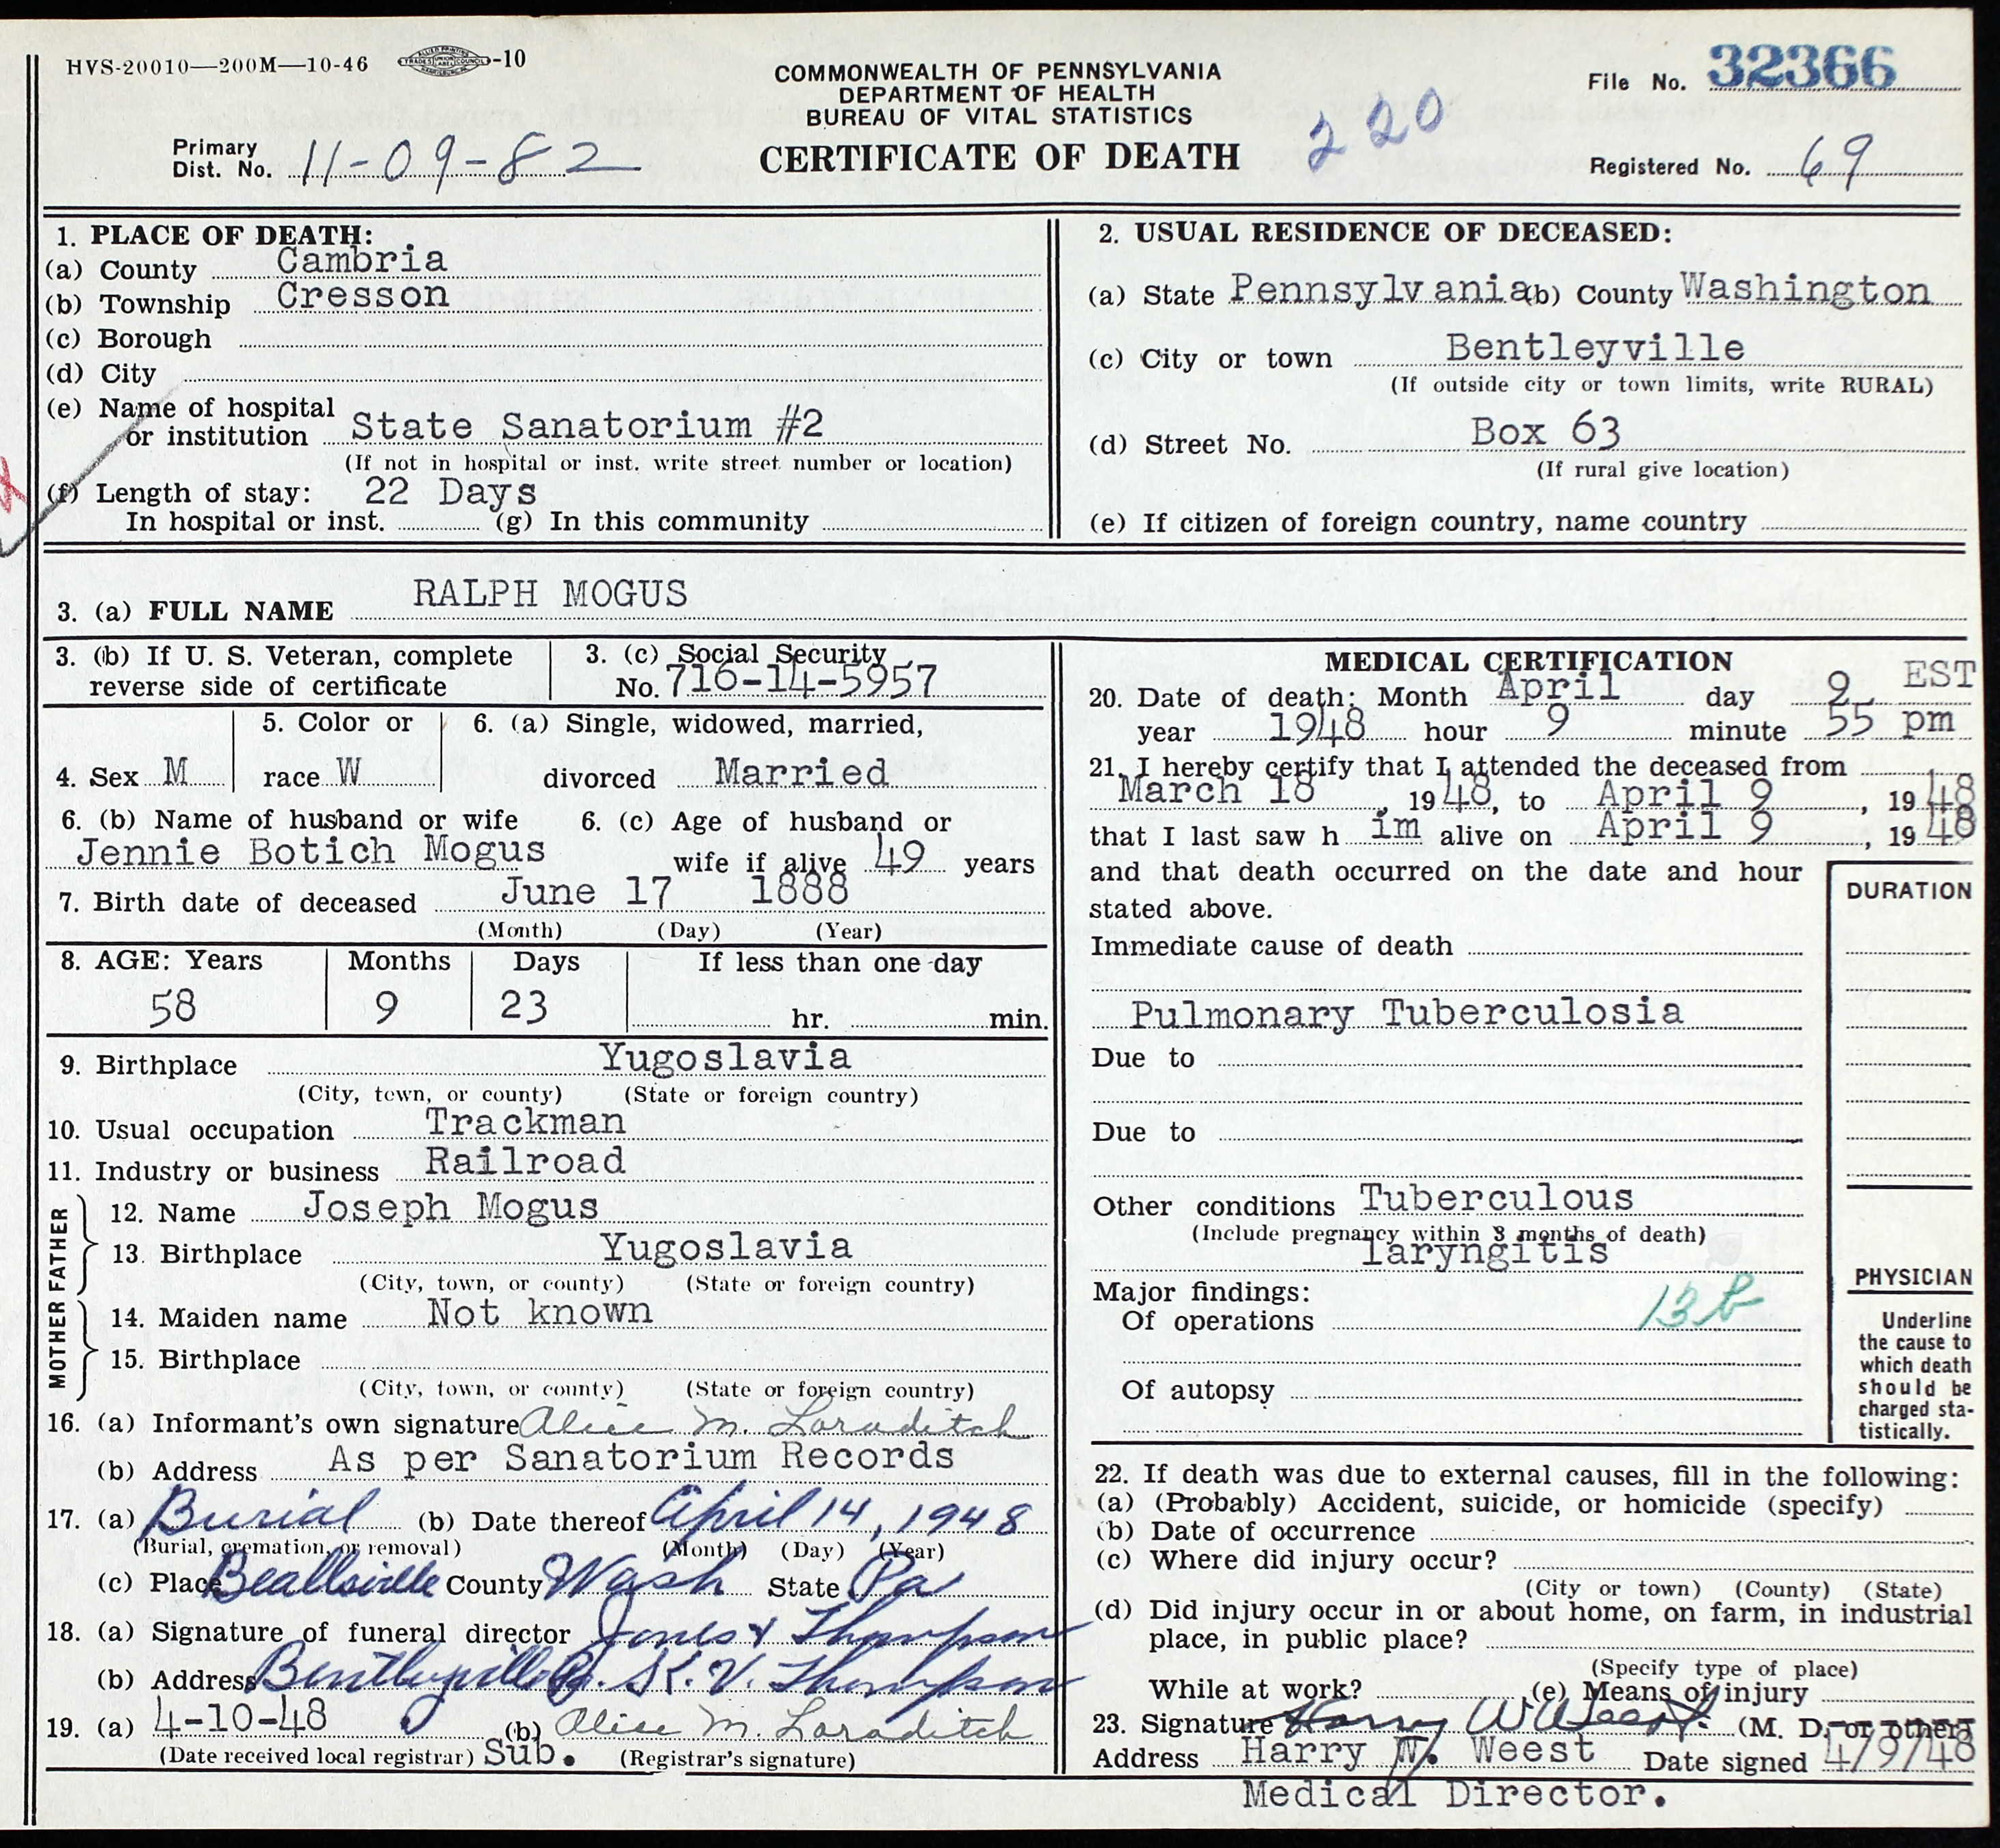 HVS-20010—200M—10-46 -10
COMMONWEALTH OF PENNSYLVANIA
DEPARTMENT OF HEALTH
BUREAU OF VITAL STATISTICS
CERTIFICATE OF DEATH
220
File No. 32366
Primary
Dist. No. 11-09-82
Registered No. 69
1. PLACE OF DEATH:
(a) County Cambria
(b) Township Cresson
(c) Borough
(d) City
(e) Name of hospital
or institution State Sanatorium #2
(If not in hospital or inst. write street number or location)
(f) Length of stay: 22 Days
In hospital or inst. (g) In this community
2. USUAL RESIDENCE OF DECEASED:
(a) State Pennsylvania (b) County Washington
(c) City or town Bentleyville
(If outside city or town limits, write RURAL)
(d) Street No. Box 63
(If rural give location)
(e) If citizen of foreign country, name country
3. (a) FULL NAME RALPH MOGUS
3. (b) If U. S. Veteran, complete
reverse side of certificate
3. (c) Social Security
No. 716-14-5957
4. Sex M
5. Color or
race W
6. (a) Single, widowed, married,
divorced Married
6. (b) Name of husband or wife
Jennie Botich Mogus
6. (c) Age of husband or
wife if alive 49 years
7. Birth date of deceased June 17 1888
(Month) (Day) (Year)
8. AGE: Years Months Days If less than one day
58 9 23 hr. min.
9. Birthplace Yugoslavia
(City, town, or county) (State or foreign country)
10. Usual occupation Trackman
11. Industry or business Railroad
FATHER
12. Name Joseph Mogus
13. Birthplace Yugoslavia
(City, town, or county) (State or foreign country)
MOTHER
14. Maiden name Not known
15. Birthplace
(City, town, or county) (State or foreign country)
16. (a) Informant's own signature Alice M. Loraditch
(b) Address As per Sanatorium Records
17. (a) Burial (b) Date thereof April 14, 1948
(Burial, cremation, or removal) (Month) (Day) (Year)
(c) Place Beallsville County Wash State Pa
18. (a) Signature of funeral director Jones & Thompson
(b) Address Bentleyville Pa. K. V. Thompson
19. (a) 4-10-48 (b) Alice M. Loraditch
(Date received local registrar) Sub. (Registrar's signature)
MEDICAL CERTIFICATION
20. Date of death: Month April day 9 EST
year 1948 hour 9 minute 55 pm
21. I hereby certify that I attended the deceased from
March 18, 1948, to April 9, 1948
that I last saw h im alive on April 9, 1948
and that death occurred on the date and hour
stated above.
DURATION
Immediate cause of death
Pulmonary Tuberculosia
Due to
Due to
Other conditions Tuberculous
(Include pregnancy within 3 months of death)
laryngitis
Major findings:
Of operations
13b
Of autopsy
PHYSICIAN
Underline
the cause to
which death
should be
charged sta-
tistically.
22. If death was due to external causes, fill in the following:
(a) (Probably) Accident, suicide, or homicide (specify)
(b) Date of occurrence
(c) Where did injury occur?
(City or town) (County) (State)
(d) Did injury occur in or about home, on farm, in industrial
place, in public place?
(Specify type of place)
While at work? (e) Means of injury
23. Signature Harry W Weest (M. D. or other)
Address Harry W. Weest Date signed 4/9/48
Medical Director.